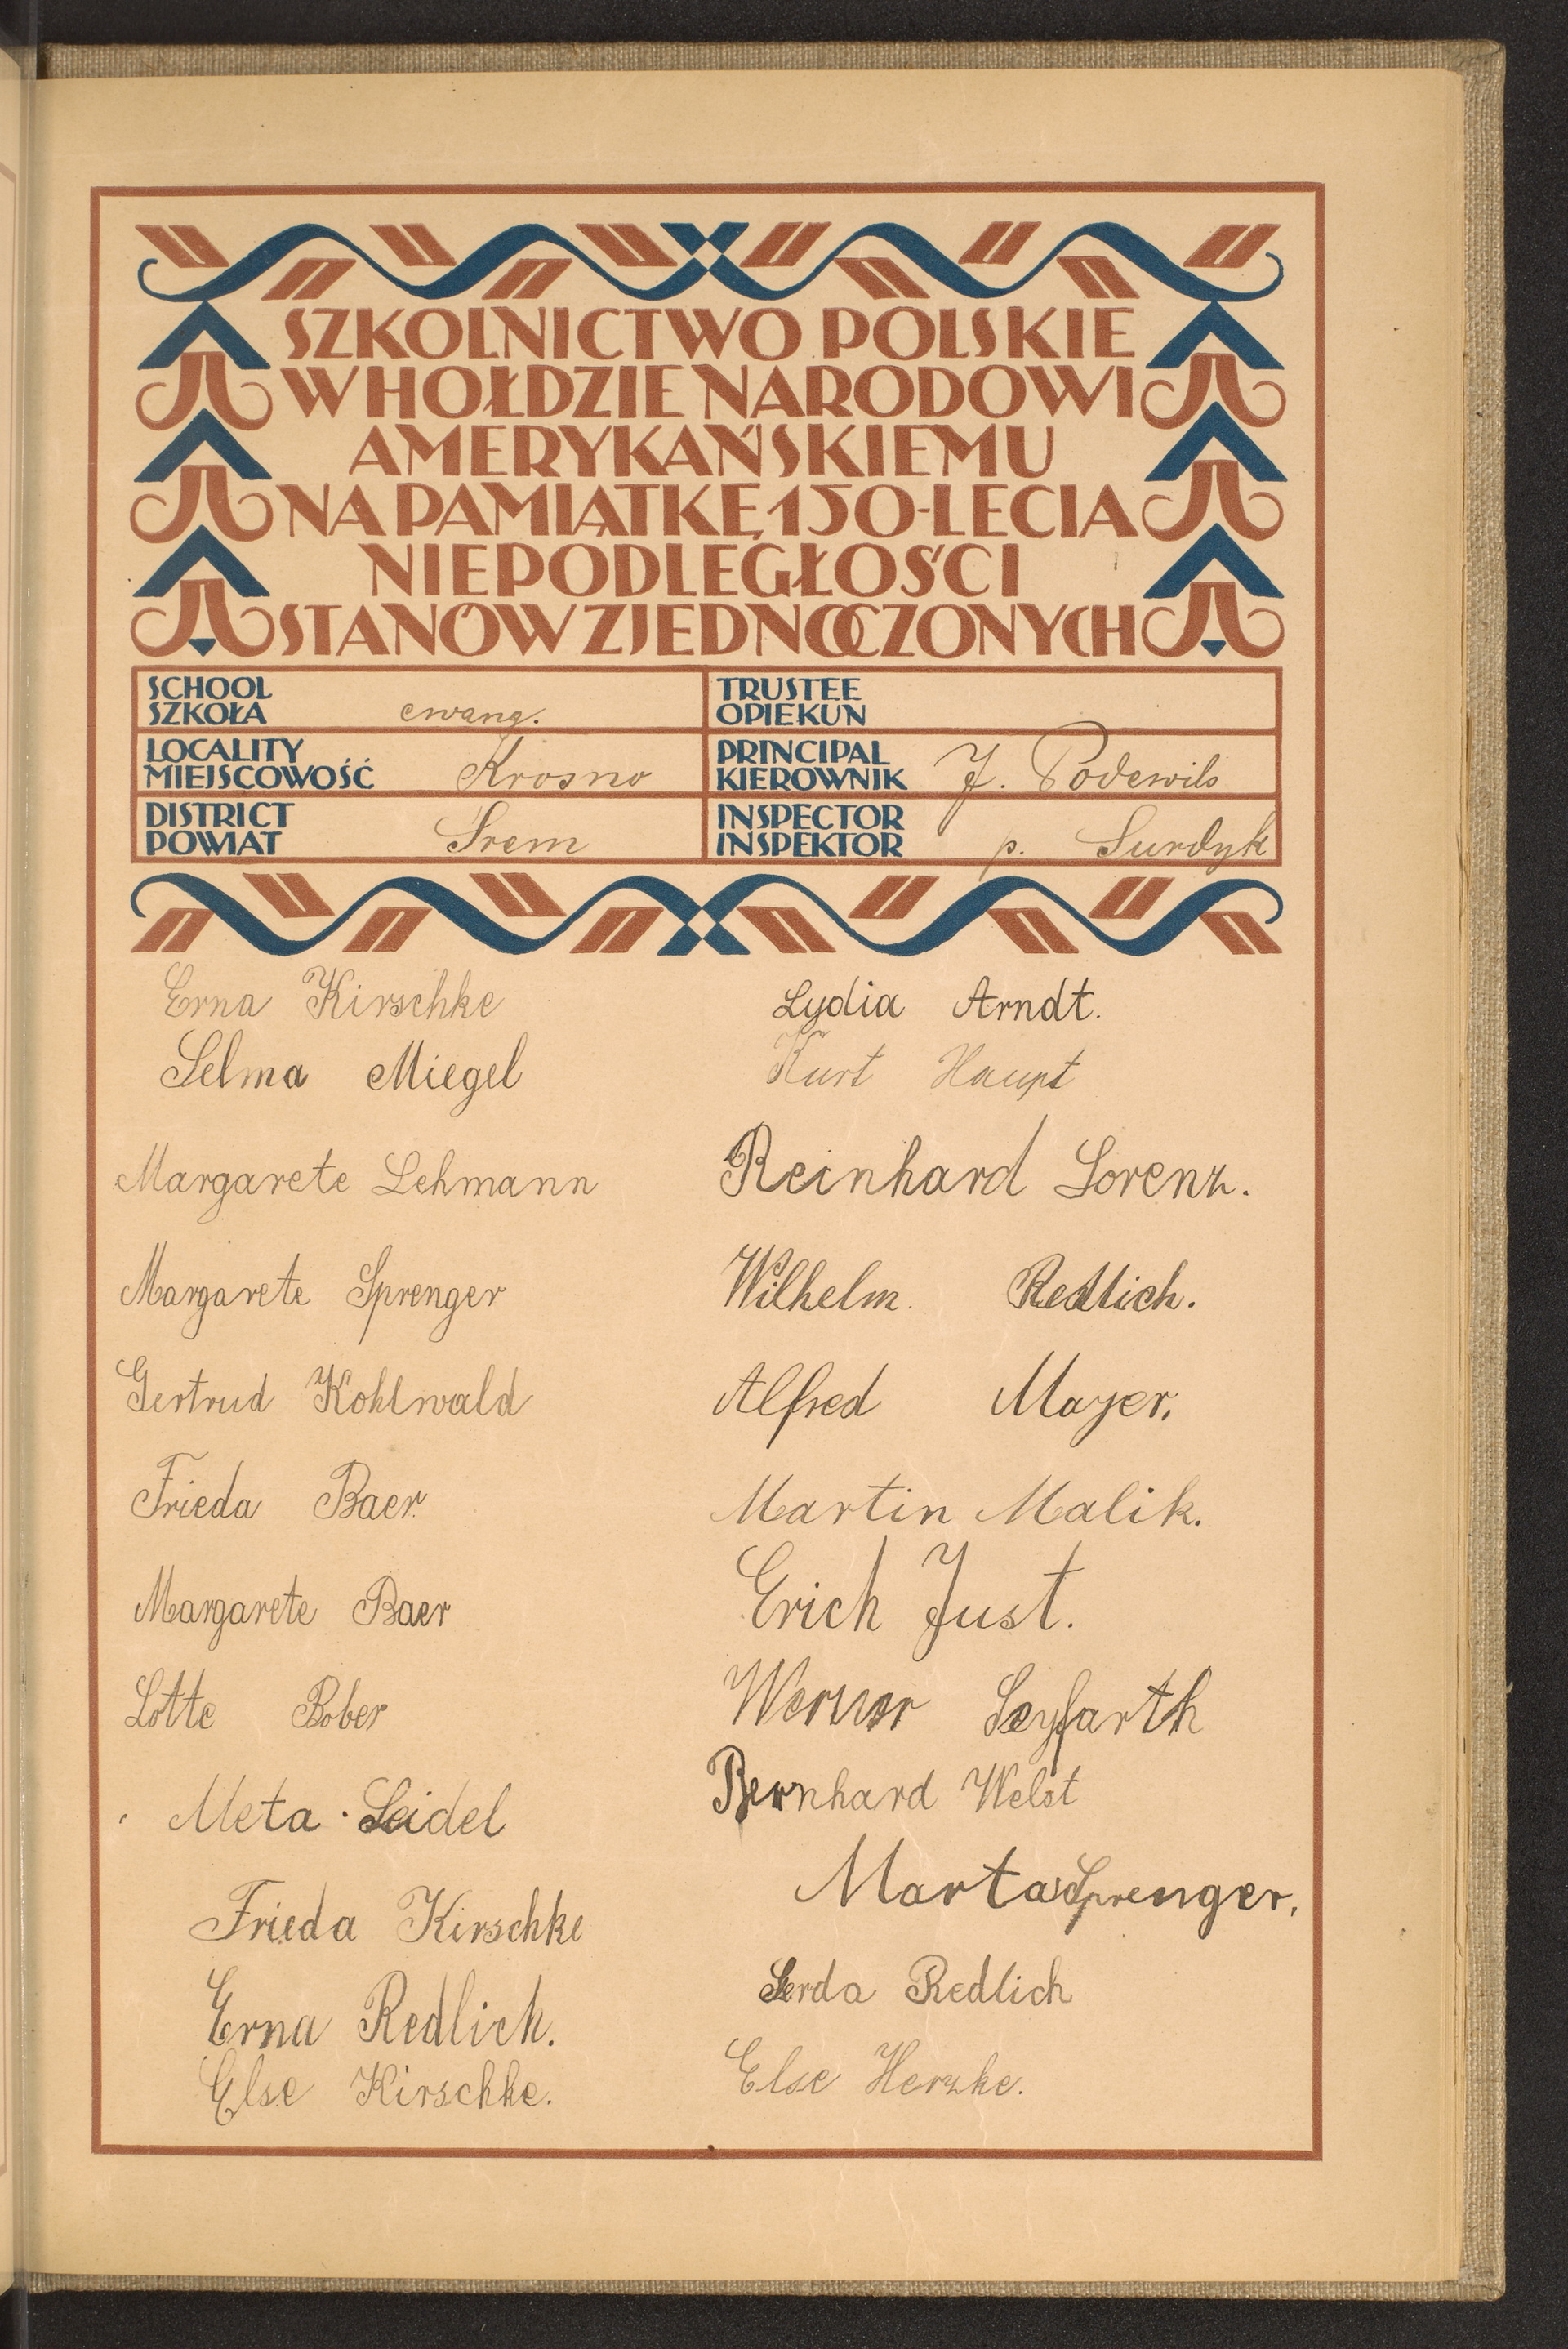 SZKOLNICTWO POLSKIE
W HOŁDZIE NARODOWI
AMERYKAŃSKIEMU
NA PAMIĄTKĘ 150-LECIA
NIEPODLEGŁOŚCI
STANÓW ZJEDNOCZONYCH
SCHOOL
SZKOŁA ewang.
LOCALITY
MIEJSCOWOŚĆ Krosno
DISTRICT
POWIAT Srem
TRUSTEE
OPIEKUN
PRINCIPAL
KIEROWNIK J. Podewils
INSPECTOR
INSPEKTOR p. Surdyk
Erna Kirschke
Selma Miegel
Margarete Lehmann
Margarete Sprenger
Gertrud Kohlwald
Frieda Baer.
Margarete Baer
Lotte Bober
Meta Seidel
Frieda Kirschke
Erna Redlich.
Else Kirschke.
Lydia Arndt.
Kurt Haupt
Reinhard Lorenz.
Wilhelm. Redlich.
Alfred Mayer.
Martin Malik.
Erich Just.
Werner Seyfarth
Bernhard Welst
Marta Sprenger.
Redlich
Else Herzke.